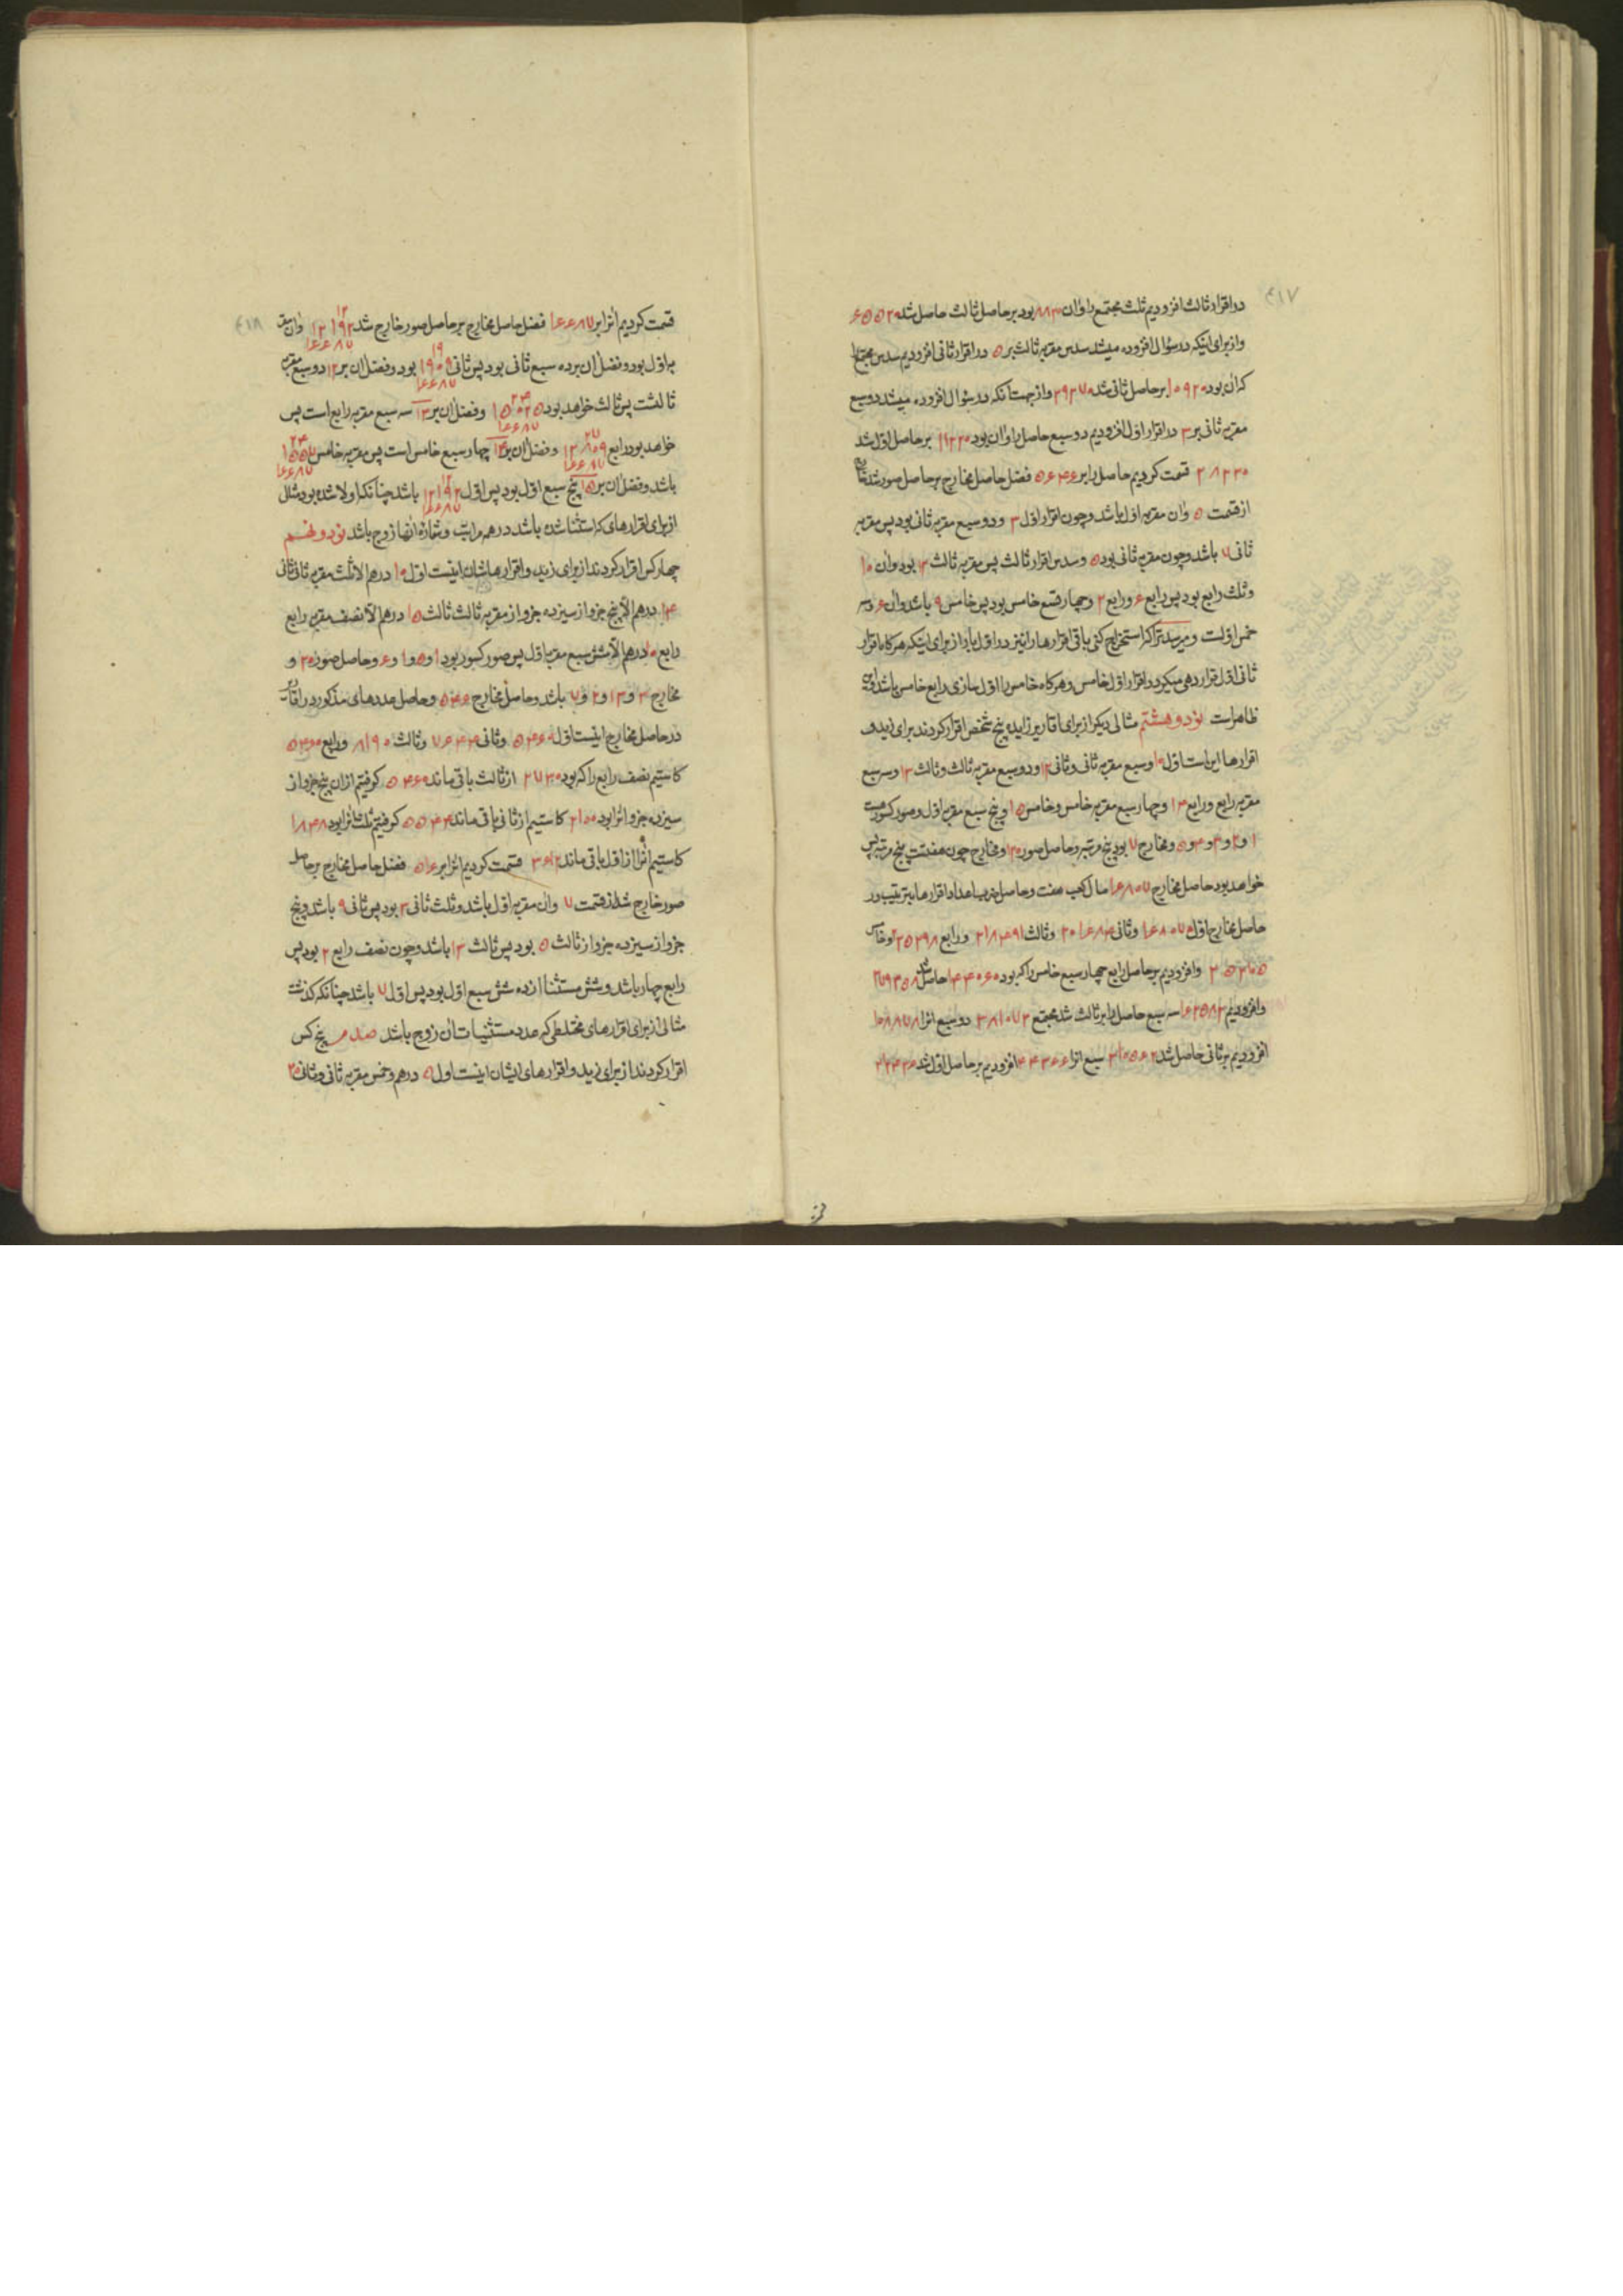 ۴۱۷
در اقرار ثالث افزودیم ثلث مجتمع را و ان ۸۸۲۰ بود بر حاصل ثالث حاصل شد ۶۵۵۲۰
و از برای اینکه در سؤال افزوده میشد سدس مقر به ثالث بر ۵ در اقرار ثانی افزودیم سدس مجتمع را
که ان بود ۱۰۹۲۰ بر حاصل ثانی شد ۳۹۲۷۰ و از جهت آنکه در سؤال افزوده میشد دو سبع
مقر به ثانی بر ۳ در اقرار اول افزودیم دو سبع حاصل را و ان بود ۱۱۲۲۰ بر حاصل اول شد
۲۸۲۳۰ قسمت کردیم حاصل را بر ۵۶۴۶ فضل حاصل مخارج بر حاصل صور شد خارج
از قسمت ۵ و ان مقر به اول باشد و چون اقرار اول ۳ و دو سبع مقر به ثانی بود پس مقر به
ثانی ۷ باشد و چون مقر به ثانی بود ۵ و سدس اقرار ثالث پس مقر به ثالث ۱۲ بود و ان ۱۰
و ثلث رابع بود پس رابع ۶ و رابع ۲ و چهار تسع خامس بود پس خامس ۹ باشد و ان ۶ و سه
خمس اولست و میرسد ترا که استخراج کنی باقی اقرارها را نیز در اول بار از برای اینکه هر کاه اقرار
ثانی اول قرار دهی میکردد اقرار اول خامس و هر کاه خامس را اول سازی رابع خامس باشد و این
ظاهر است نود و هشتم مثالی دیکر از برای اقاریر زایده پنج شخص اقرار کردند برای زید و
اقرارها این است اول ۱۰ و سبع مقر به ثانی و ثانی ۱۲ و دو سبع مقر به ثالث و ثالث ۱۳ و سه سبع
مقر به رابع و رابع ۱۴ و چهار سبع مقر به خامس و خامس ۱۵ و پنج سبع مقر به اول و صور کسور هست
۱ و ۲ و ۳ و ۴ و ۵ و مخارج ۷ بود پنج مرتبه و حاصل صور ۱۲۰ و مخارج چون هفتست پنج مرتبه پس
خواهد بود حاصل مخارج ۱۶۸۰۷ مال کعب هفت و حاصل ضرب اعداد اقرارها بترتیب در
حاصل مخارج اول ۱۶۸۰۷۰ و ثانی ۲۰۱۶۸۴ و ثالث ۲۱۸۴۹۱ و رابع ۲۳۵۲۹۸ و خامس
۲۵۲۱۰۵ و افزودیم بر حاصل رابع چهار سبع خامس را که بود ۱۴۴۰۶۰ حاصل شد ۳۷۹۳۵۸
و افزودیم ۱۶۲۵۸۲ سه سبع حاصل را بر ثالث شد مجتمع ۳۸۱۰۷۳ دو سبع انرا ۱۰۸۸۷۸
افزودیم بر ثانی حاصل شد ۳۱۰۵۶۲ سبع انرا ۴۴۳۶۶ افزودیم بر حاصل اول شد ۲۱۲۴۳۶
۴۱۸
قسمت کردیم انرا بر ۱۶۶۸۷ فضل حاصل مخارج بر حاصل صور خارج شد ۱۲ ۱۲۱۹۲ ۱۶۶۸۷ و ان مقر
به اول بود و فضل ان بر ده سبع ثانی بود پس ثانی ۱۹ ۱۹۰۹ ۱۶۶۸۷ بود و فضل ان بر ۱۲ دو سبع مقر به
ثالثست پس ثالث خواهد بود ۲۴ ۱۵۰۲۵ ۱۶۶۸۷ و فضل ان بر ۱۳ سه سبع مقر به رابع است پس
خواهد بود رابع ۲۷ ۱۲۸۰۹ ۱۶۶۸۷ و فضل ان بر ۱۴ چهار سبع خامس است پس مقر به خامس
باشد و فضل ان بر ۱۵ پنج سبع اول بود پس اول ۱۲ ۱۲۱۹۲ ۱۶۶۸۷ باشد چنانکه اولا شده بود مثال
از برای اقرارهای که استثنا شده باشد در هر مراتب و شماره انها زوج باشد نود و نهم
چهار کس اقرار کردند از برای زید و اقرارهاشان اینست اول ۱۰ درهم الا ثلث مقر به ثانی ثانی
۱۴ درهم الا پنج جزو از سیزده جزو از مقر به ثالث ثالث ۱۵ درهم الا نصف مقر به رابع
رابع ۱۰ درهم الا شش سبع مقر به اول پس صور کسور بود ۱ و ۵ و ۱ و ۶ و حاصل صور ۳۰ و
مخارج ۳ و ۱۳ و ۲ و ۷ باشد و حاصل مخارج ۵۴۶ و حاصل عددهای مذکور در اقاریر
در حاصل مخارج اینست اول ۵۴۶۰ و ثانی ۷۶۴۴ و ثالث ۸۱۹۰ و رابع ۵۴۶۰
کاستیم نصف رابع را که بود ۲۷۳۰ از ثالث باقی ماند ۵۴۶۰ کرفتیم از ان پنج جزو از
سیزده جزو انرا بود ۲۱۰۰ کاستیم از ثانی باقی ماند ۵۵۴۴ کرفتیم ثلث انرا بود ۱۸۴۸
کاستیم انرا از اول باقی ماند ۳۶۱۲ قسمت کردیم انرا بر ۵۱۶ فضل حاصل مخارج بر حاصل
صور خارج شد از قسمت ۷ و ان مقر به اول باشد و ثلث ثانی ۳ بود پس ثانی ۹ باشد و پنج
جزو از سیزده جزو از ثالث ۵ بود پس ثالث ۱۳ باشد و چون نصف رابع ۲ بود پس
رابع چهار باشد و شش مستثنا از ده شش سبع اول بود پس اول ۷ باشد چنانکه کذشت
مثالی از برای اقرارهای مختلطی که عدد مستثنیات ان زوج باشد صدم پنج کس
اقرار کردند از برای زید و اقرارهای ایشان اینست اول ۵ درهم و خمس مقر به ثانی و ثانی ۲۵